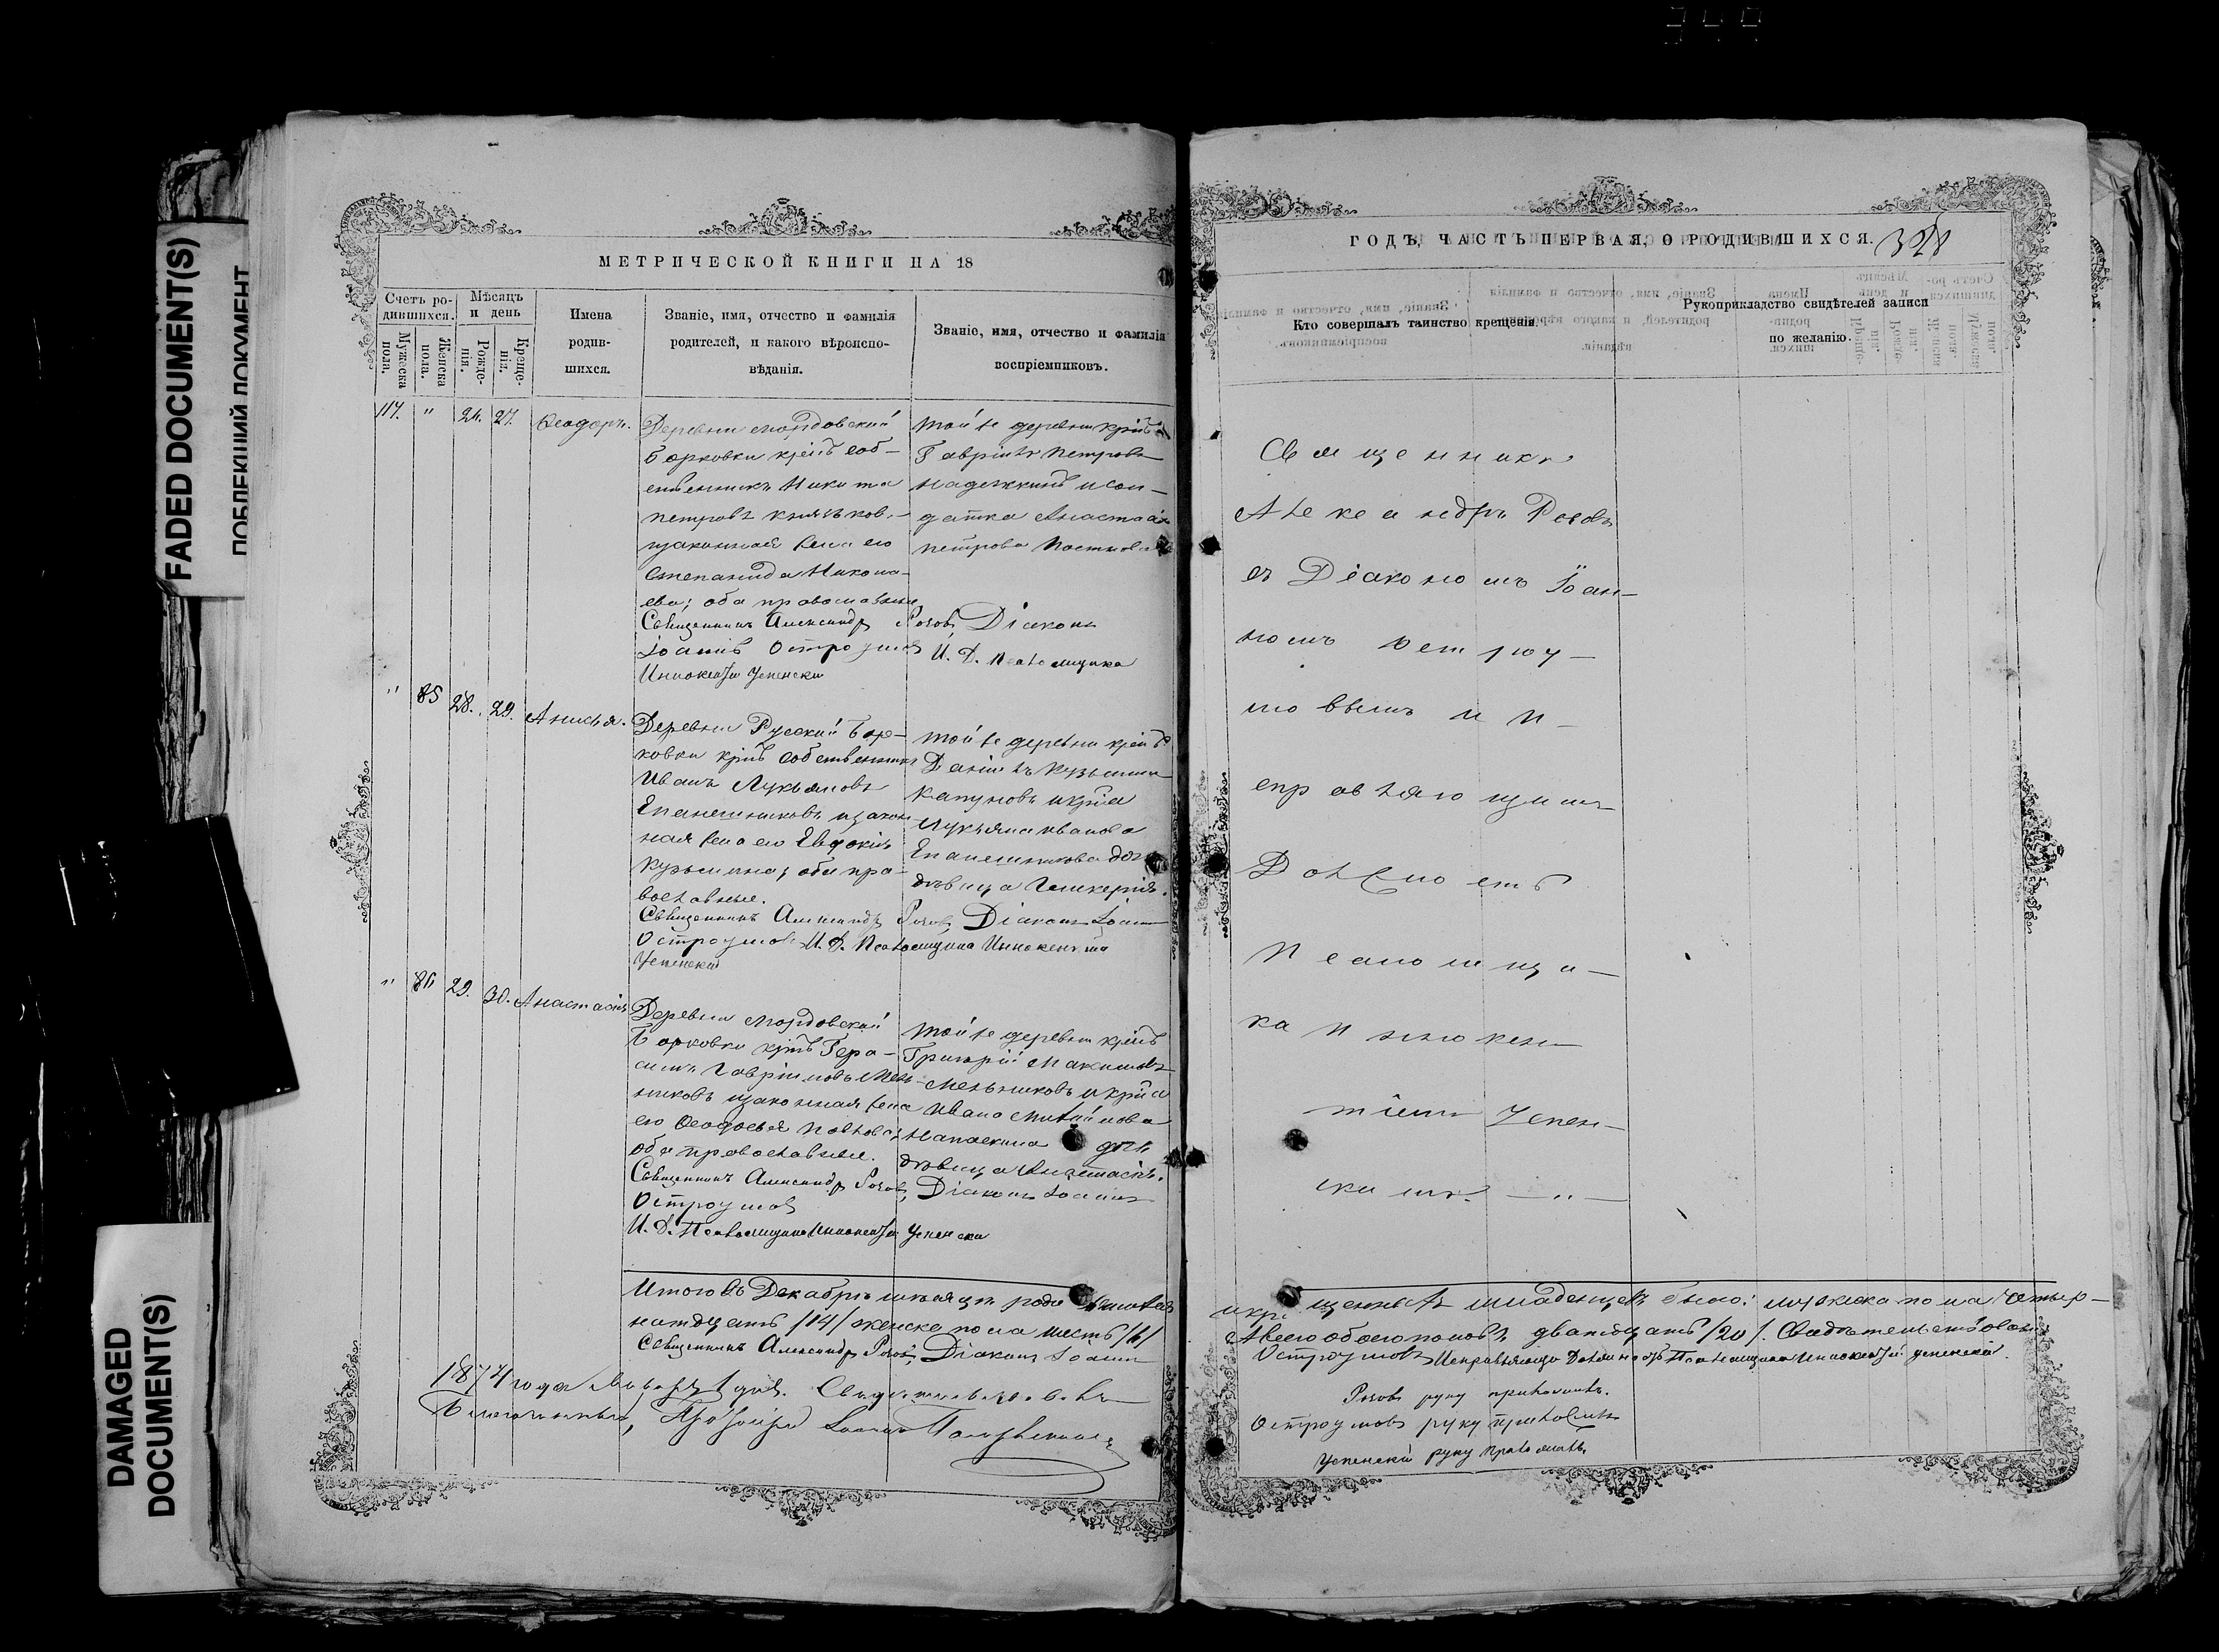 FADED DOCUMENT(S)
ПОБЛЕКШИЙ ДОКУМЕНТ
DAMAGED
DOCUMENT(S)
МЕТРИЧЕСКОЙ КНИГИ НА 18
Счетъ ро-
дившихся.
Мужеска
пола.
Женска
пола.
Мѣсяцъ
и день
Рожде-
нія.
Креще-
нія.
Имена
родив-
шихся.
Званіе, имя, отчество и фамилія
родителей, и какого вѣроиспо-
вѣданія.
Званіе, имя, отчество и фамилія
воспріемниковъ.
117. " 24. 27. Ѳеодоръ.
Деревни Мордовской
Борковки крнъ соб-
ственникъ Никита
Петровъ Князьков.
и законная жена его
Степанида Никола-
ева; оба православные
Священникъ Александръ Розовъ, Діаконъ
Іоаннъ Остроумовъ И. Д. Псаломщика
Иннокентій Успенскій
Той же деревни крнъ
Гавріилъ Петровъ
Надежкинъ и сол-
датка Анастасія
Петрова
" 85 28. 29. Анисья.
Деревни Русской Бор-
ковки крнъ собственникъ
Иванъ Лукьяновъ
Епанешниковъ и закон
ная жена его Евдокія
Кузьмина; оба пра-
вославные.
Священникъ Александръ Розовъ, Діаконъ Іоаннъ
Остроумовъ И. Д. Псаломщика Иннокентій
Успенскій
Той же деревни крнъ
Даніилъ Кузьминъ
Капуновъ и крна
Лукьяна Иванова
Епанешникова доч
дѣвица Гликерія.
" 86 29. 30. Анастасія
Деревни Мордовской
Борковки крнъ Гера-
симъ Гавріиловъ Мель-
никовъ и законная жена
его Ѳеодосья Павлова;
оба православные.
Священникъ Александръ Розовъ, Діаконъ Іоаннъ
Остроумовъ
И. Д. Псаломщика Иннокентій Успенскій
Той же деревни крнъ
Григорій Максимовъ
Мельниковъ и крна
Ивана
дочь
дѣвица Анастасія.
Итого въ Декабрѣ мѣсяцѣ
надцать /14/ женска пола шесть /6/
Священникъ Александръ Розовъ, Діаконъ Іоаннъ
1874 года 1 дня. Свидѣтельствовалъ
Благочинный, Протоіерей Іоаннъ
ГОДЪ, ЧАСТЬ ПЕРВАЯ, О РОДИВШИХСЯ. 328
Кто совершалъ таинство крещенія.
Рукоприкладство свидѣтелей записи
по желанію.
Священникъ
Александръ Розовъ
съ Діакономъ Іоан-
номъ Остроу-
мовымъ и И-
справляющимъ
Должность
Псаломщи-
ка Иннокен-
тіемъ Успен-
скимъ. — „ —
щенныхъ младенцевъ было: мужеска пола четыр-
А всего обоего половъ двадцать /20/. Свидѣтельствовали
Остроумовъ Исправляющій Должность Псаломщика Иннокентій Успенскій.
Розовъ руку приложилъ.
Остроумовъ руку приложилъ
Успенскій руку приложилъ